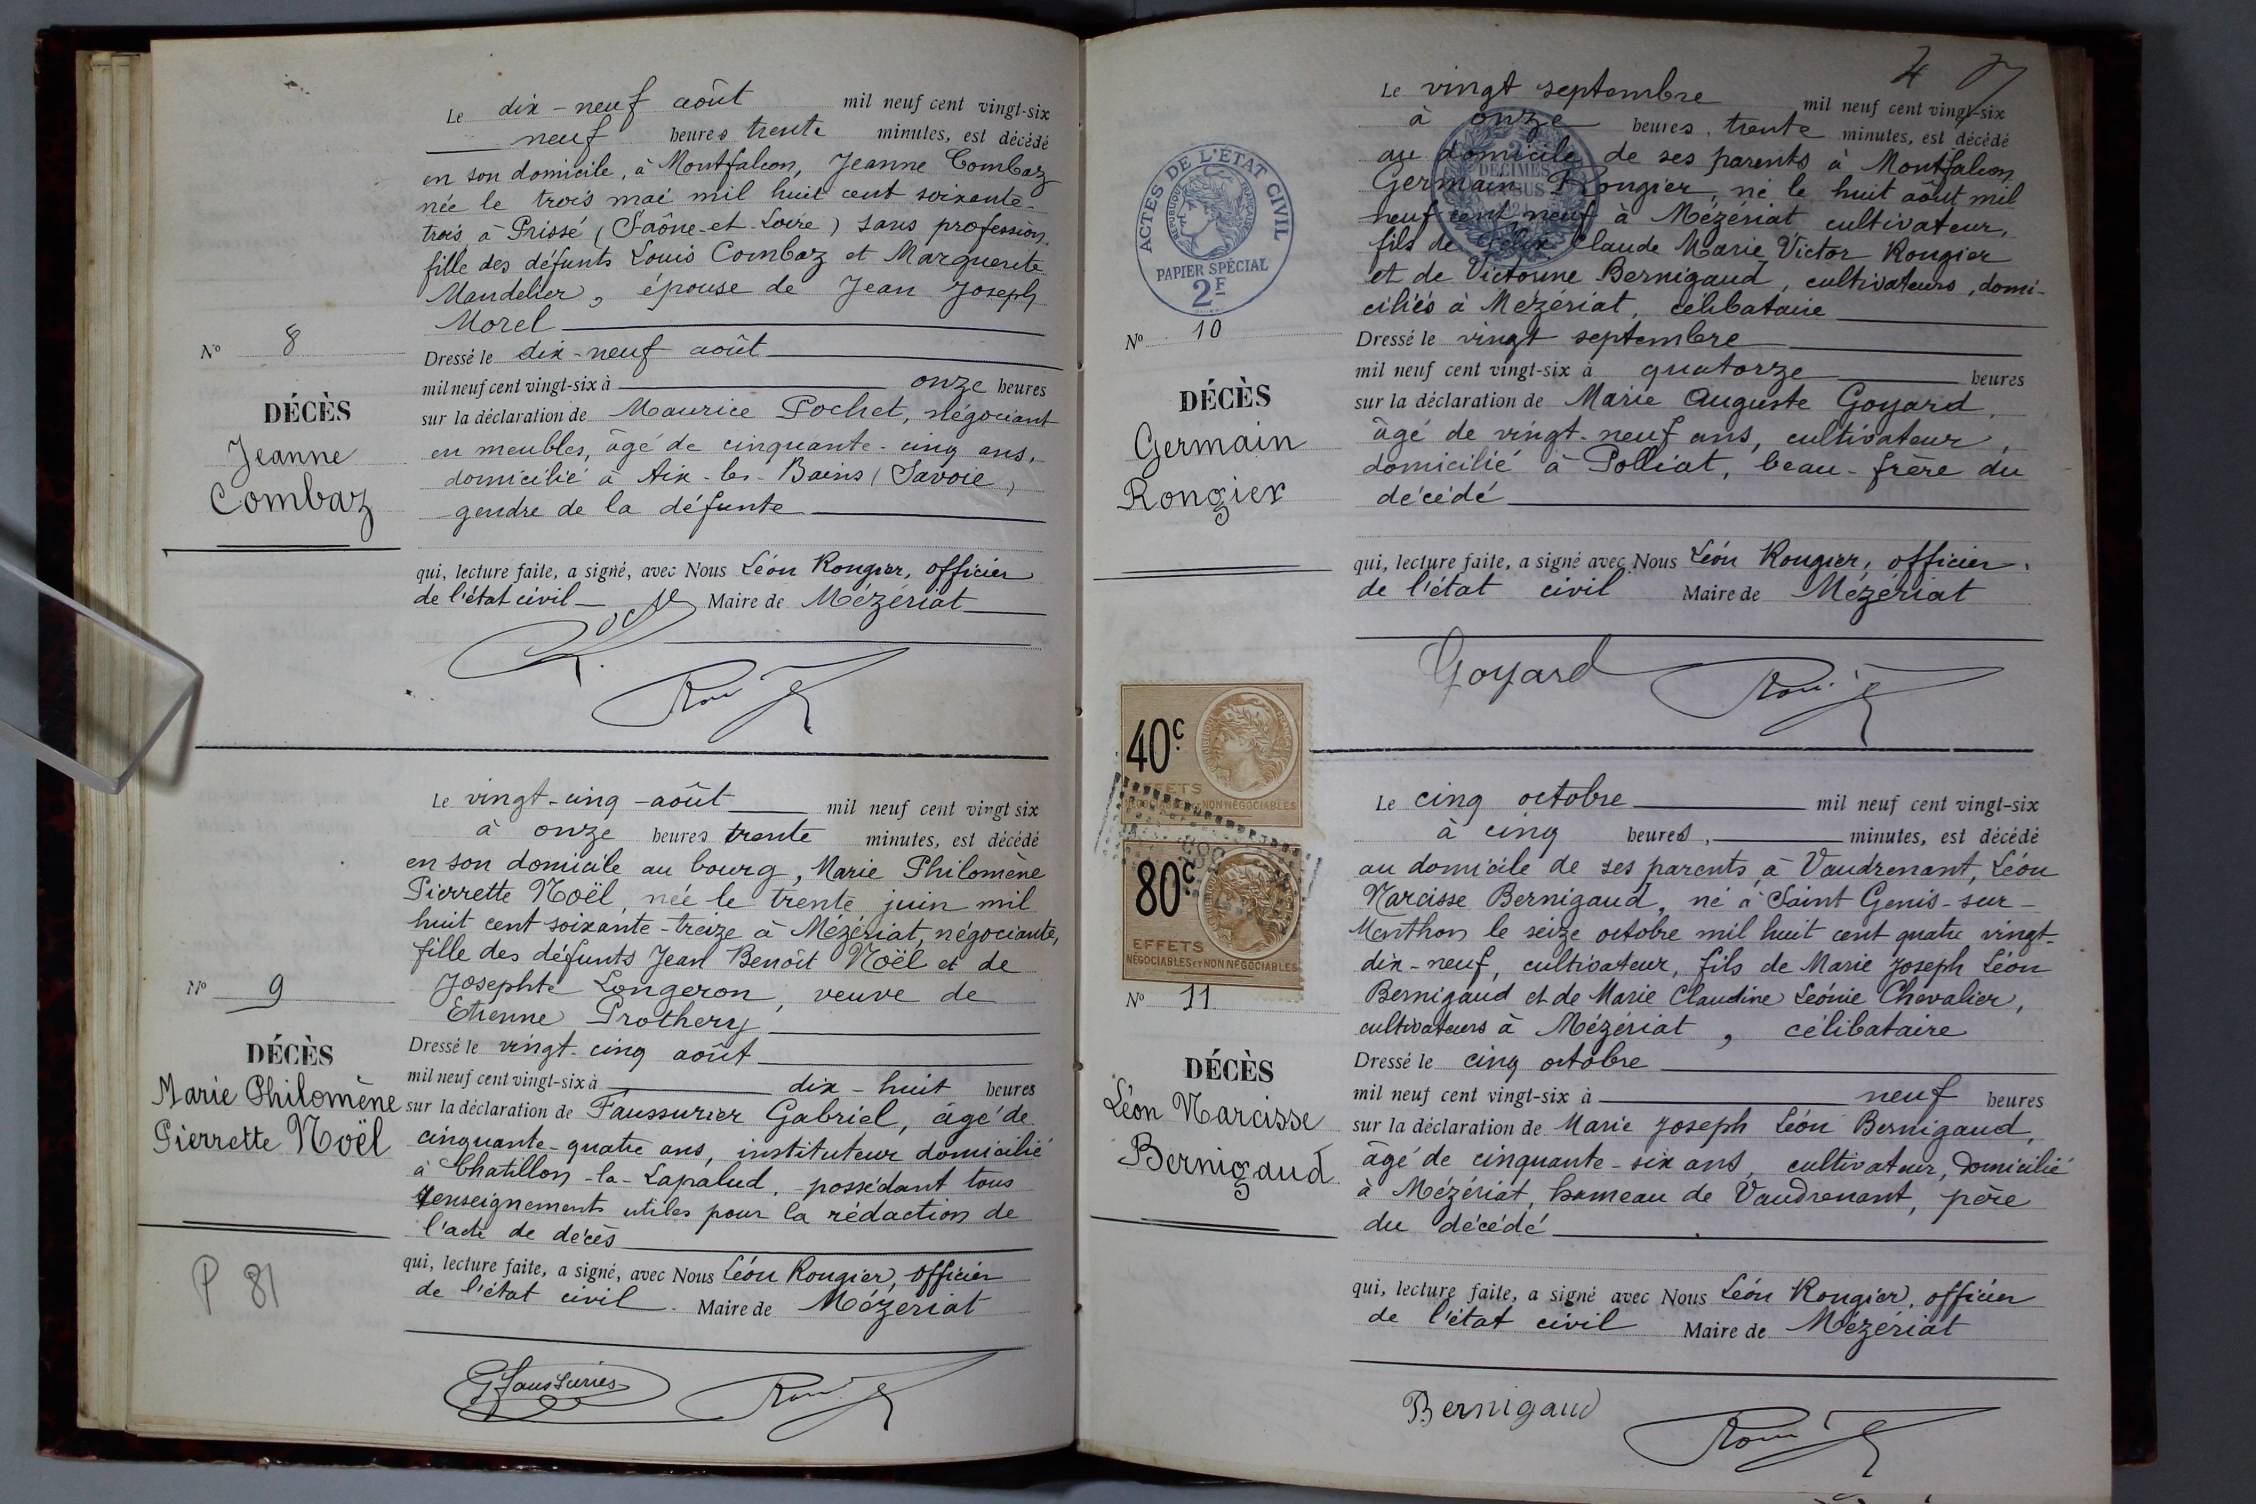 Le dix-neuf août mil neuf cent vingt-six
neuf heures trente minutes, est décédé
en son domicile, à Montfalcon, Jeanne Combaz
née le trois mai mil huit cent soixante-
trois à Prissé (Saône-et-Loire) sans profession,
fille des défunts Louis Combaz et Marguerite
Mandelier, épouse de Jean Joseph
Morel
Nº 8
DÉCÈS
Jeanne
Combaz
Dressé le dix-neuf août
mil neuf cent vingt-six à onze heures
sur la déclaration de Maurice Pochet, négociant
en meubles, âgé de cinquante-cinq ans,
domicilié à Aix-les-Bains (Savoie)
gendre de la défunte
qui, lecture faite, a signé, avec Nous Léon Rougier, officier
de l'état civil Maire de Mézériat
Le vingt-cinq août mil neuf cent vingt six
à onze heures trente minutes, est décédé
en son domicile au bourg, Marie Philomène
Pierrette Noël, née le trente juin mil
huit cent soixante-treize à Mézériat, négociante,
fille des défunts Jean Benoît Noël et de
Josephte Longeron, veuve de
Etienne Prothery
Nº 9
DÉCÈS
Marie Philomène
Pierrette Noël
P 81
Dressé le vingt-cinq août
mil neuf cent vingt-six à dix-huit heures
sur la déclaration de Faussurier Gabriel, âgé de
cinquante-quatre ans, instituteur domicilié
à Chatillon-la-Lapalud, possédant tous
renseignements utiles pour la rédaction de
l'acte de décès
qui, lecture faite, a signé, avec Nous Léon Rougier, officier
de l'état civil. Maire de Mézériat
4
Le vingt septembre mil neuf cent vingt-six
à onze heures, trente minutes, est décédé
au domicile de ses parents à Montfalcon
Germain Rongier, né le huit août mil
neuf cent neuf à Mézériat, cultivateur,
fils de Félix Claude Marie Victor Rongier
et de Victorine Bernigaud, cultivateurs, domi-
ciliés à Mézériat, célibataire
ACTES DE L'ÉTAT CIVIL
RÉPUBLIQUE FRANÇAISE
PAPIER SPÉCIAL
2F
2
DÉCIMES
EN SUS
Nº 10
DÉCÈS
Germain
Rongier
Dressé le vingt septembre
mil neuf cent vingt-six à quatorze heures
sur la déclaration de Marie Auguste Goyard,
âgé de vingt-neuf ans, cultivateur,
domicilié à Polliat, beau-frère du
décédé
qui, lecture faite, a signé avec Nous Léon Rougier, officier
de l'état civil Maire de Mézériat
Goyard
40c
EFFETS
NÉGOCIABLES ET NON NÉGOCIABLES
80c
EFFETS
NÉGOCIABLES ET NON NÉGOCIABLES
Le cinq octobre mil neuf cent vingt-six
à cinq heures, minutes, est décédé
au domicile de ses parents à Vaudrenant, Léon
Narcisse Bernigaud, né à Saint Genis-sur-
Menthon le seize octobre mil huit cent quatre vingt-
dix-neuf, cultivateur, fils de Marie Joseph Léon
Bernigaud et de Marie Claudine Léonie Chevalier,
cultivateurs à Mézériat, célibataire
Nº 11
DÉCÈS
Léon Narcisse
Bernigaud
Dressé le cinq octobre
mil neuf cent vingt-six à neuf heures
sur la déclaration de Marie Joseph Léon Bernigaud,
âgé de cinquante-six ans, cultivateur, domicilié
à Mézériat, hameau de Vaudrenant, père
du décédé
qui, lecture faite, a signé avec Nous Léon Rougier, officier
de l'état civil Maire de Mézériat
Bernigaud